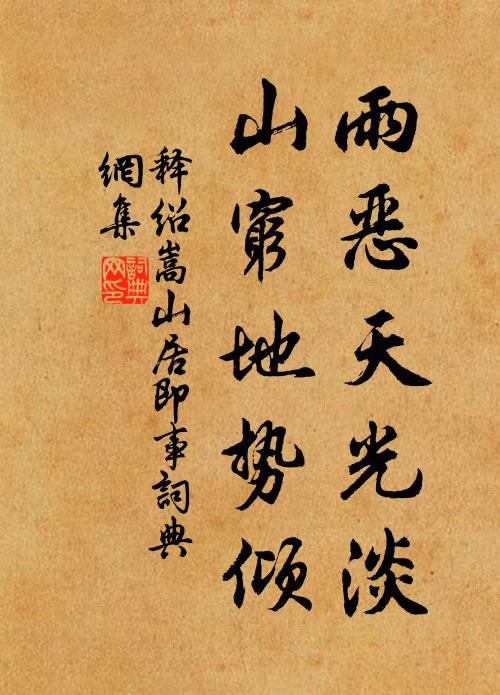 雨恶天光淡
山窮地势倾
释绍嵩山居即事詞典
網集
詞典
网印